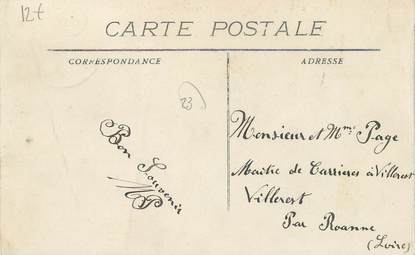 12t
CARTE POSTALE
CORRESPONDANCE
ADRESSE
23
Bon Souvenir
MP
Monsieur et Mme Page
Maître de Carrières à Villerest
Villerest
Par Roanne
(Loire)